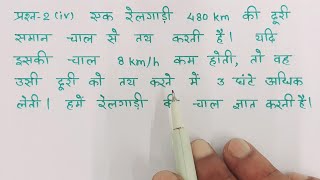 प्रश्न-2 (iv) एक रेलगाड़ी 480 km की दूरी
समान चाल से तय करती है। यदि
इसकी चाल 8 km/h कम होती, तो वह
उसी दूरी को तय करने में 3 घंटे अधिक
लेती। हमें रेलगाड़ी की चाल ज्ञात करनी है।